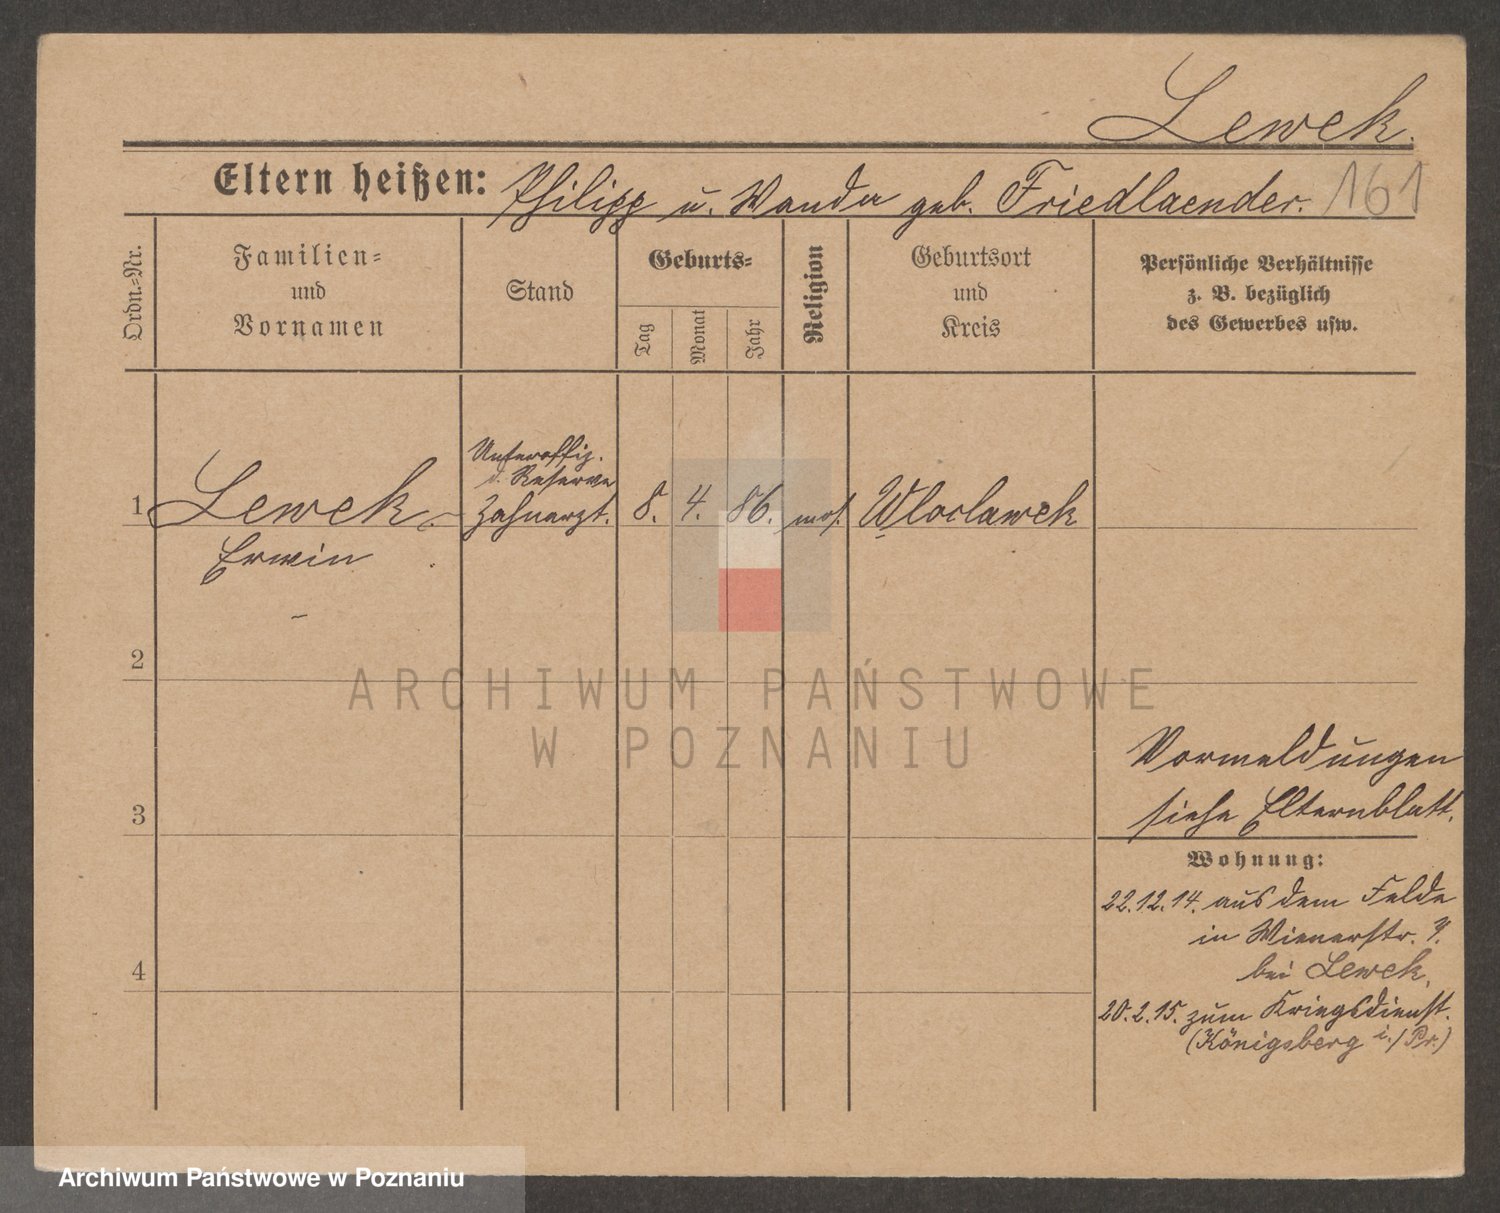 Lewek.
Eltern heißen: Philipp u. Wanda geb. Friedlaender. 161
Ordn.=Nr.
Familien=
und
Vornamen
Stand
Geburts=
Tag
Monat
Jahr
Religion
Geburtsort
und
Kreis
Persönliche Verhältnisse
z. B. bezüglich
des Gewerbes usw.
Unteroffiz.
d. Reserve
1 Lewek Zahnarzt. 8. 4. 86. mos. Wloclawek
Erwin
2
ARCHIWUM PAŃSTWOWE
W POZNANIU
Vormeldungen
siehe Elternblatt.
3
Wohnung:
22.12.14. aus dem Felde
in Wienerstr.
bei Lewek,
4
20.2.15. zum Kriegsdienst.
(Königsberg i./Pr.)
Archiwum Państwowe w Poznaniu